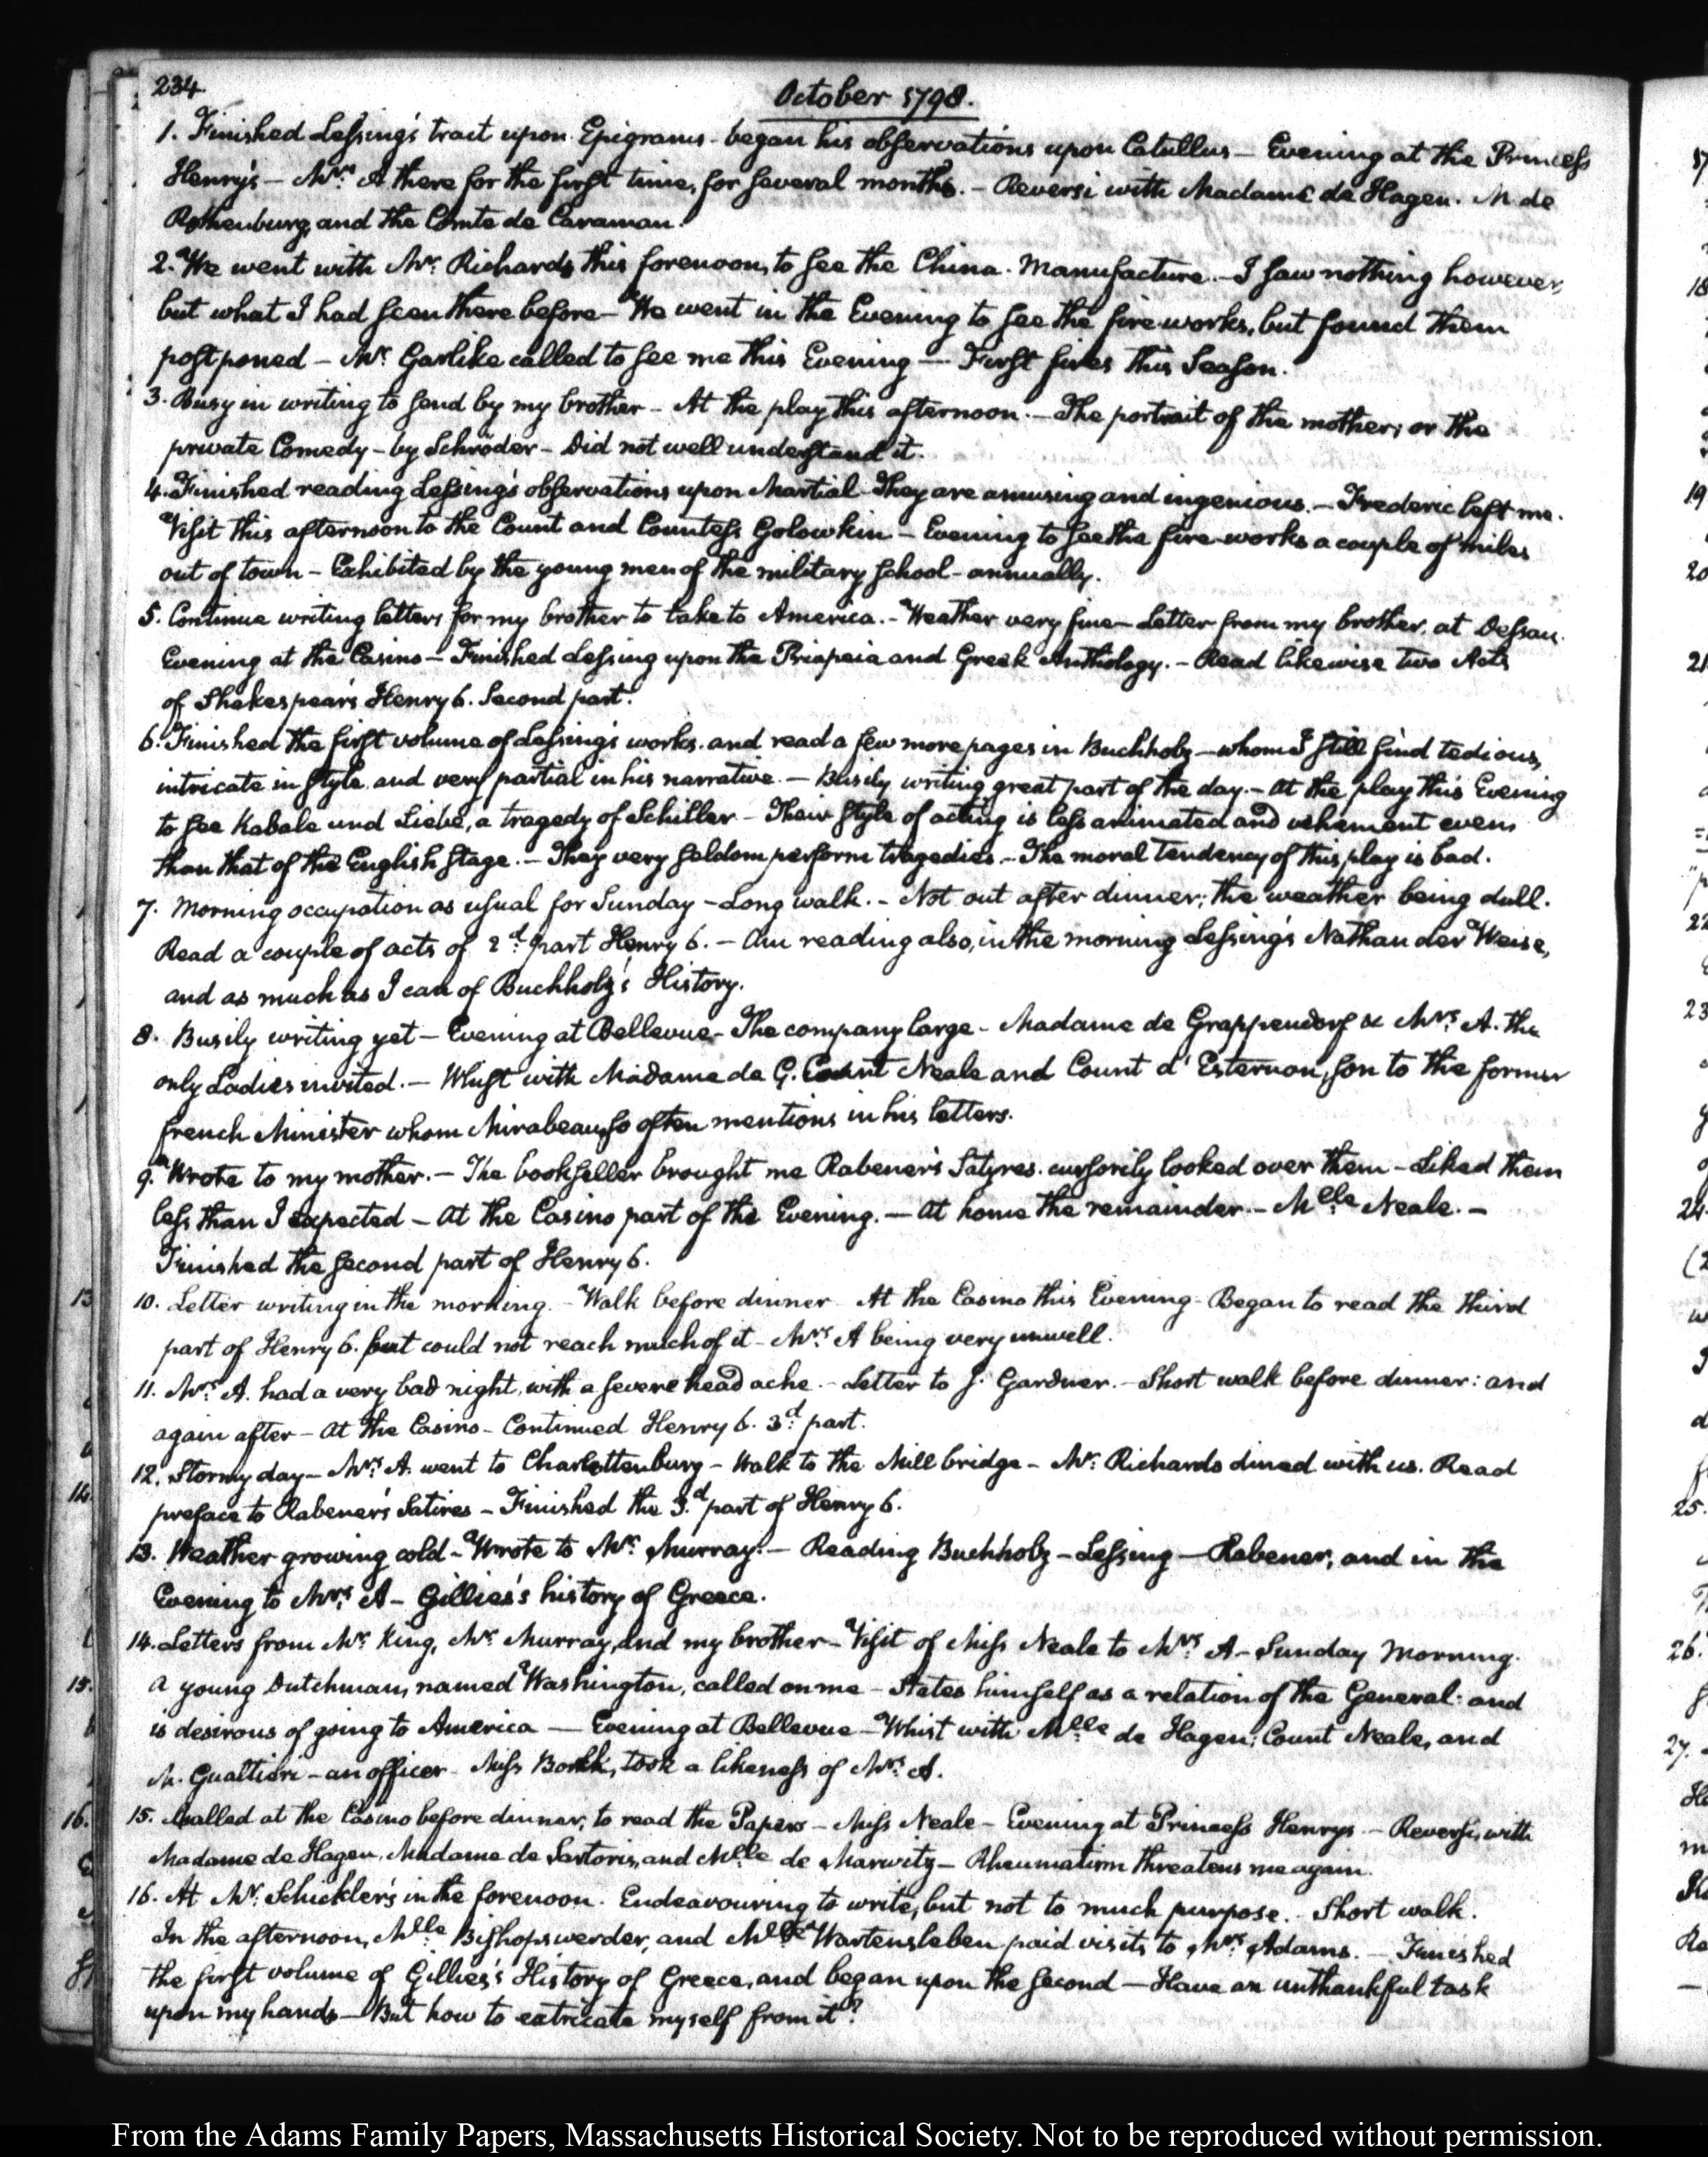 234.
October 1798.
1. Finished Lessing's tract upon Epigrams - began his observations upon Catullus — Evening at the Princess
Henry's — Mrs. A there for the first time, for several months. — Reversi with Madame de Hagen. M. de
Rothenburg, and the Comte de Caraman.
2. We went with Mr. Richards this forenoon, to see the China. Manufacture. — I saw nothing however,
but what I had seen there before — We went in the Evening to see the fire works, but found them
postponed — Mr. Garlike called to see me this Evening — First fires this Season.
3. Busy in writing to send by my brother — At the play this afternoon. — The portrait of the mother; or the
private Comedy — by Schröder — Did not well understand it.
4. Finished reading Lessing's observations upon Martial — They are amusing and ingenious. — Frederic left me.
Visit this afternoon to the Count and Countess Golowkin — Evening to see the fire-works a couple of miles
out of town — Exhibited by the young men of the military school — annually.
5. Continue writing letters for my brother to take to America. — Weather very fine — Letter from my brother, at Dessau.
Evening at the Casino — Finished Lessing upon the Priapeia and Greek Anthology. — Read likewise two Acts
of Shakespear's Henry 6. Second part.
6. Finished the first volume of Lessing's works. and read a few more pages in Buchholz — whom I still find tedious,
intricate in style, and very partial in his narrative. — Busily writing great part of the day. — At the play this Evening
to see Kabale und Liebe, a tragedy of Schiller — Their style of acting is less animated and vehement even,
than that of the English stage. — They very seldom perform tragedies. — The moral tendency of this play is bad.
7. Morning occupation as usual for Sunday — Long walk. — Not out after dinner; the weather being dull.
Read a couple of acts of 2d. part Henry 6. — Am reading also, in the morning Lessing's Nathan der Weise,
and as much as I can of Buchholz's History.
8. Busily writing yet — Evening at Bellevue — The company large — Madame de Grappendorf & Mrs. A. the
only Ladies invited. — Whist with Madame de G. Count Neale and Count d'Esternon, son to the former
french Minister whom Mirabeau so often mentions in his letters.
9. Wrote to my mother. — The bookseller brought me Rabener's Satyres. cursorily looked over them — Liked them
less than I expected — At the Casino part of the Evening. — At home the remainder. — Mlle. Neale. —
Finished the second part of Henry 6.
10. Letter writing in the morning. — Walk before dinner — At the Casino this Evening — Began to read the third
part of Henry 6. but could not reach much of it — Mrs. A being very unwell.
11. Mrs. A. had a very bad night, with a severe head ache. — Letter to J. Gardner. — Short walk before dinner: and
again after — At the Casino — Continued Henry 6. 3d. part.
12. Stormy day — Mrs. A. went to Charlottenburg — Walk to the Mill bridge — Mr. Richards dined with us. Read
preface to Rabener's Satires — Finished the 3.d part of Henry 6.
13. Weather growing cold — Wrote to Mr. Murray. — Reading Buchholz — Lessing — Rabener, and in the
Evening to Mrs. A — Gillies's history of Greece.
14. Letters from Mr. King, Mr. Murray, and my brother — Visit of Miss Neale to Mrs. A — Sunday Morning.
a young Dutchman, named Washington, called on me — States himself as a relation of the General: and
is desirous of going to America — Evening at Bellevue — Whist with Mlle. de Hagen, Count Neale, and
M. Gualtieri — an officer — Miss took a likeness of Mrs. A.
15. Called at the Casino before dinner, to read the Papers — Miss Neale — Evening at Princess Henrys — Reversi, with
Madame de Hagen, Madame de Sartoris, and Mlle de Marwitz — Rheumatism threatens me again.
16. At Mr. Schickler's in the forenoon. Endeavouring to write, but not to much purpose. — Short walk.
In the afternoon, Mlle. Bishopswerder, and Mlle Wartensleben paid visits to Mrs. Adams. — Finished
the first volume of Gillies's History of Greece, and began upon the second — Have an unthankful task
upon my hands — But how to extricate myself from it?
From the Adams Family Papers, Massachusetts Historical Society. Not to be reproduced without permission.